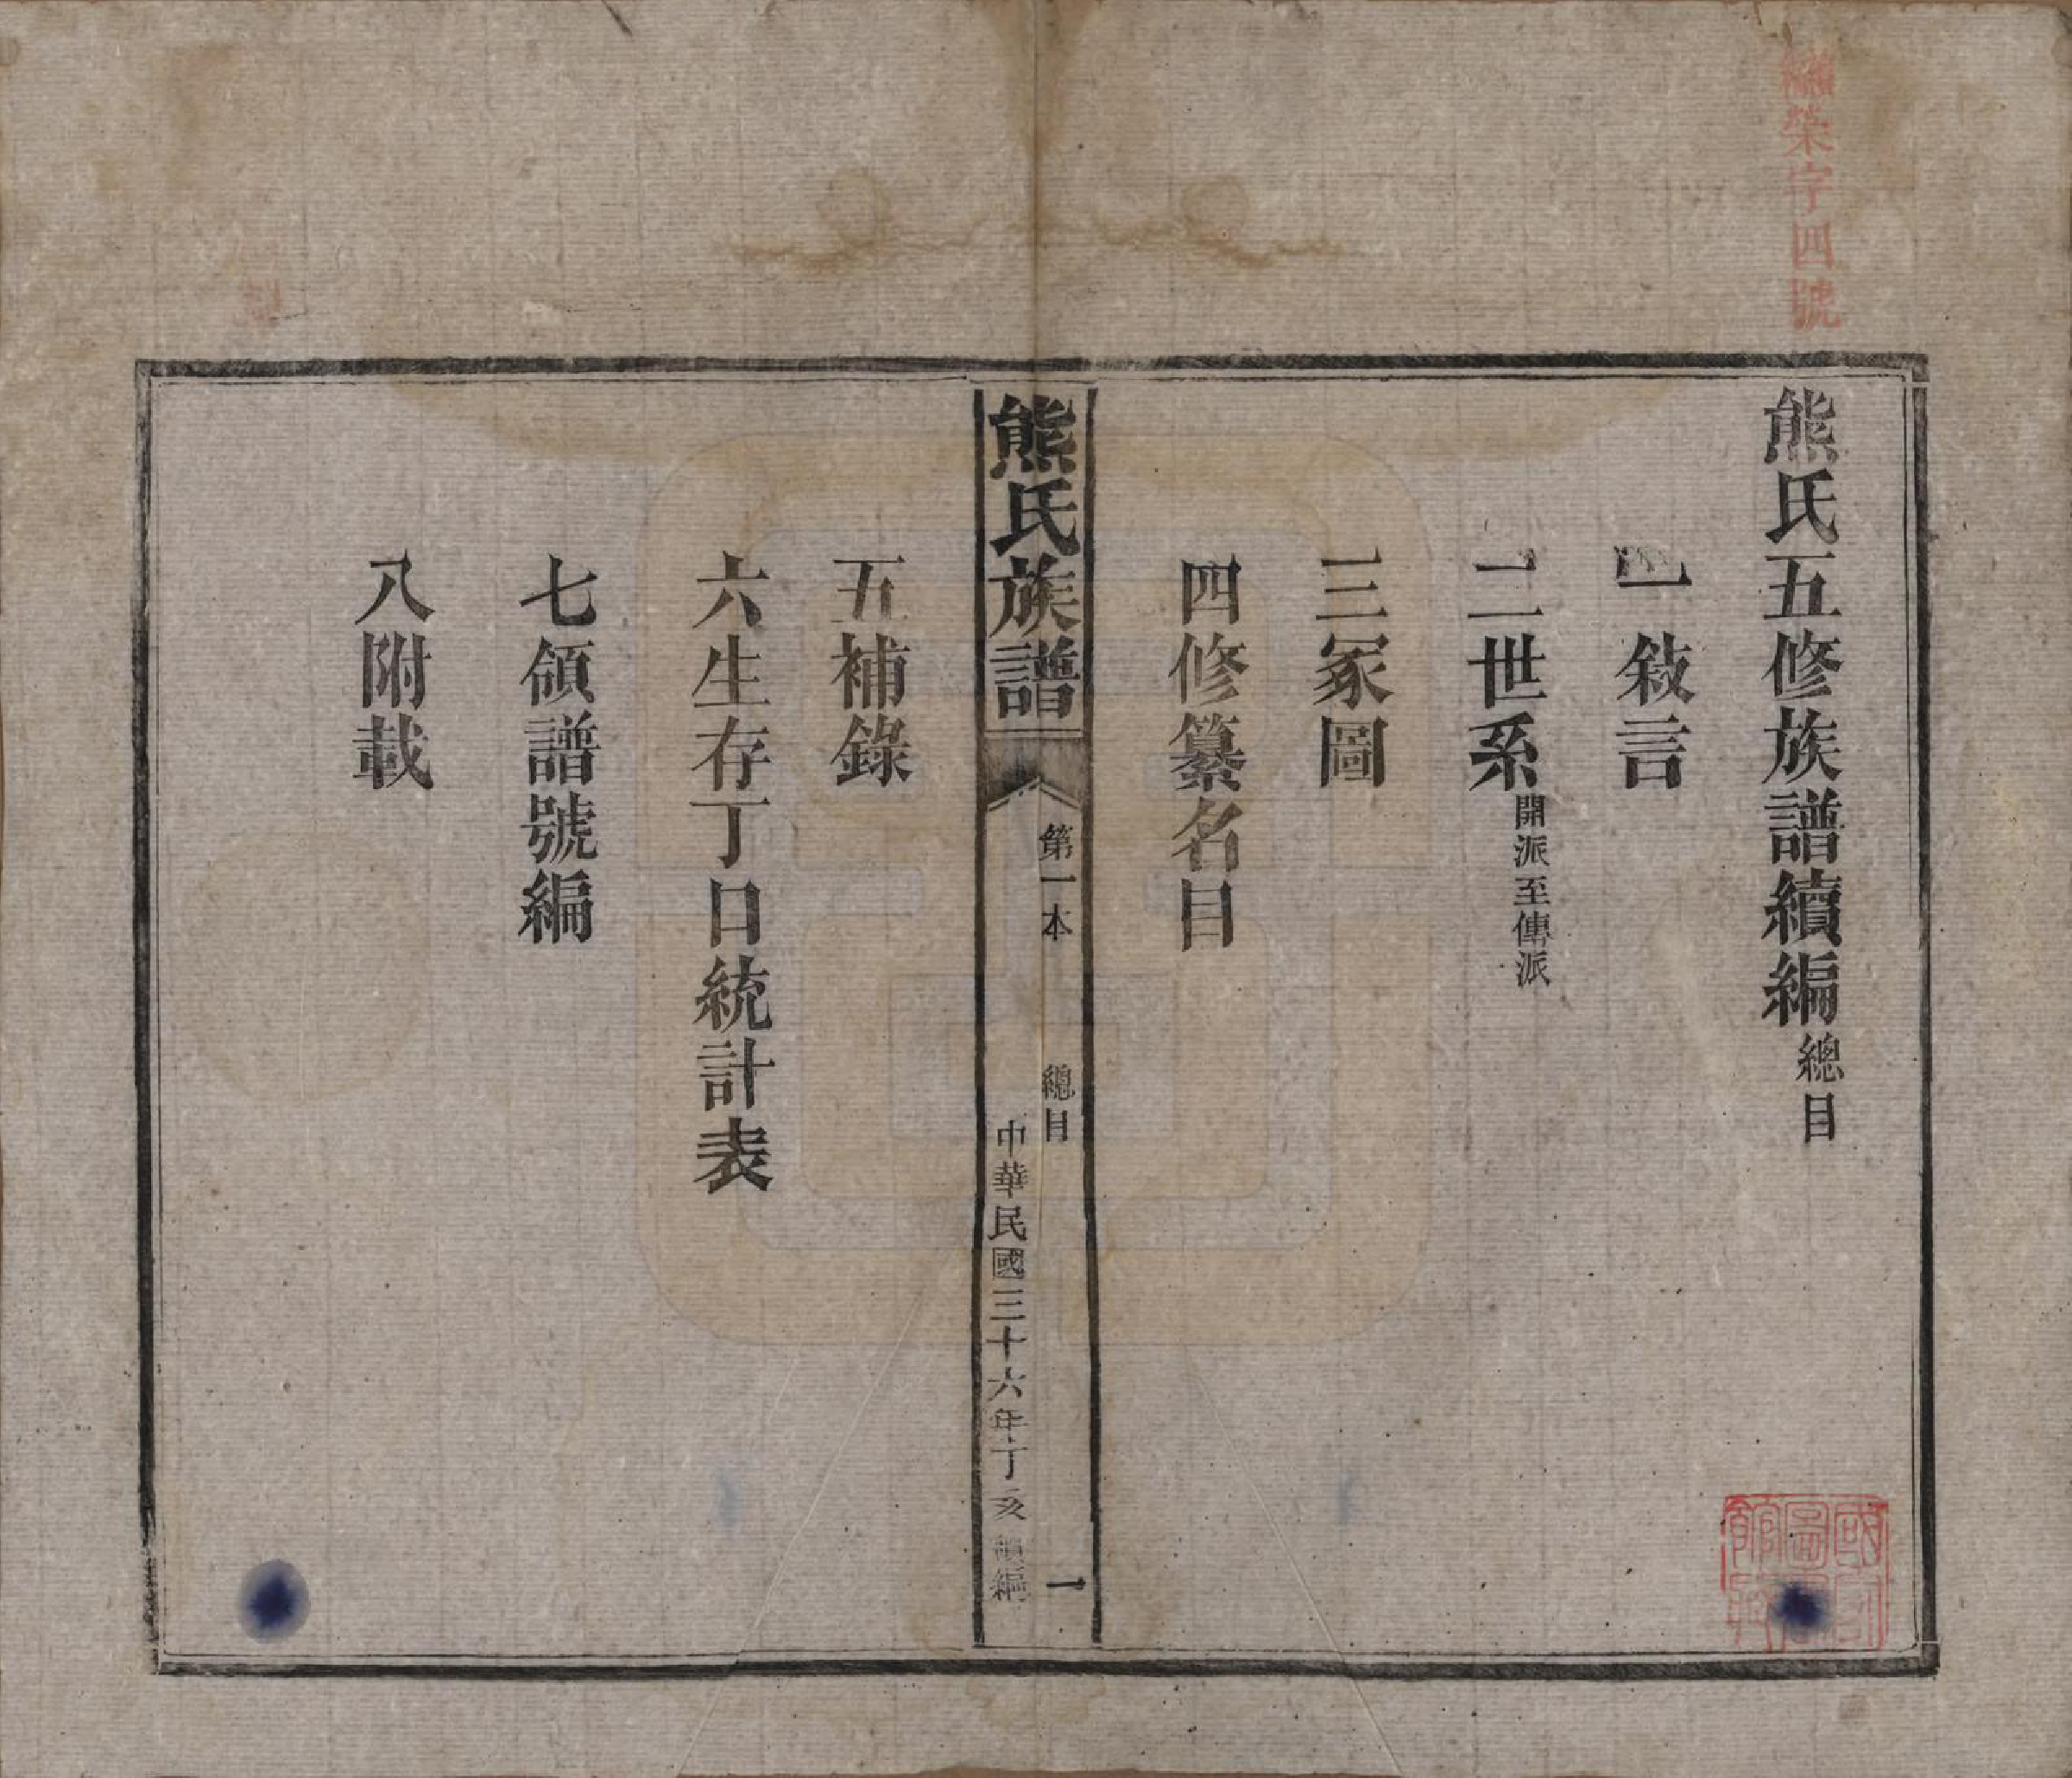 榮字四號
熊氏五修族譜續編總目
一敍言
二世系開派至傳派
三冢圖
四修纂名目
熊氏族譜
第一本
總目
一
中華民國三十六年丁亥續編
五補錄
六生存丁口統計表
七領譜號編
八附載